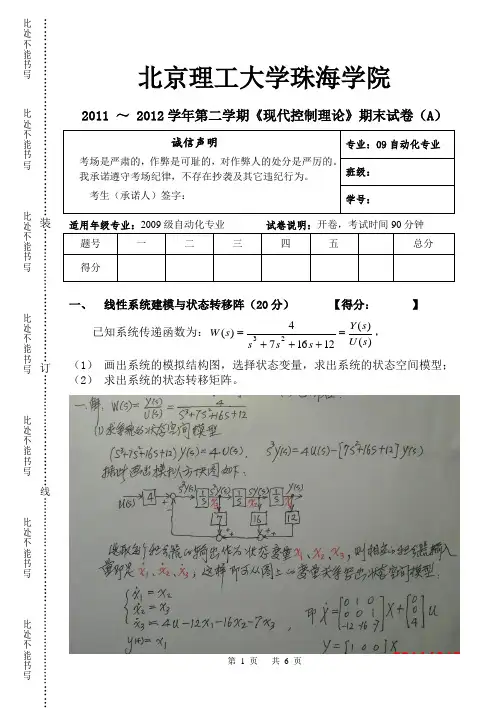 北京理工大学珠海学院
2011 ~ 2012学年第二学期《现代控制理论》期末试卷（A）
诚信声明
考场是严肃的，作弊是可耻的，对作弊人的处分是严厉的。
我承诺遵守考场纪律，不存在抄袭及其它违纪行为。
考生（承诺人）签字：
专业：09自动化专业
班级：
学号：
适用年级专业：2009级自动化专业 试卷说明：开卷，考试时间90分钟
题号 一 二 三 四 五 总分
得分
一、 线性系统建模与状态转移阵（20分） 【得分： 】
已知系统传递函数为：W(s) = 4 / (s³ + 7s² + 16s + 12) = Y(s) / U(s)，
（1） 画出系统的模拟结构图，选择状态变量，求出系统的状态空间模型；
（2） 求出系统的状态转移矩阵。
一.解. W(s) = Y(s)/U(s) = 4 / (S³+7S²+16S+12)
(1)求系统的状态空间模型
(S³+7S²+16S+12) Y(s) = 4·U(s). S³Y(s) = 4U(s) - [7S²+16S+12] Y(s)
据此画出模拟方块图如下:
U(s) 4 S³Y(s) 1/S S²Y(s) 1/S SY(s) 1/S Y(s)
7 16 12
选取每个积分器的输出作为状态变量x₁、x₂、x₃,则相应的积分器输入
量即是ẋ₁、ẋ₂、ẋ₃,这样即可从图上的变量关系写出状态空间模型:
ẋ₁ = x₂
ẋ₂ = x₃
ẋ₃ = 4u - 12x₁ - 16x₂ - 7x₃ , 即 Ẋ = [0 1 0; 0 0 1; -12 -16 -7] X + [0; 0; 4] u
y(t) = x₁ Y = [1 0 0] X
第 1 页 共 6 页
此处不能书写
此处不能书写
此处不能书写
装
此处不能书写
订
此处不能书写
线
此处不能书写
此处不能书写